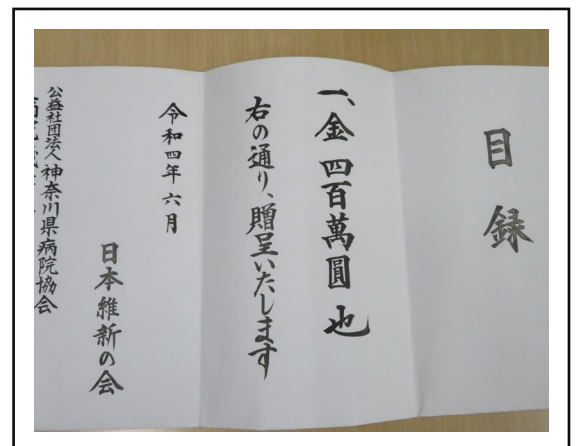 目録
一、金 四百萬圓 也
右の通り、贈呈いたします
令和四年六月
日本維新の会
公益社団法人神奈川県病院協会